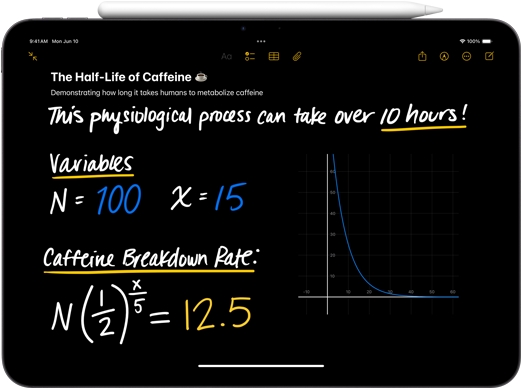 9:41AM Mon Jun 10
100%
Aa
The Half-Life of Caffeine ☕
Demonstrating how long it takes humans to metabolize caffeine
This physiological process can take over 10 hours!
Variables
N = 100 x = 15
Caffeine Breakdown Rate:
N(1/2)^(x/5) = 12.5
60
50
40
30
20
10
-10 10 20 30 40 50 60